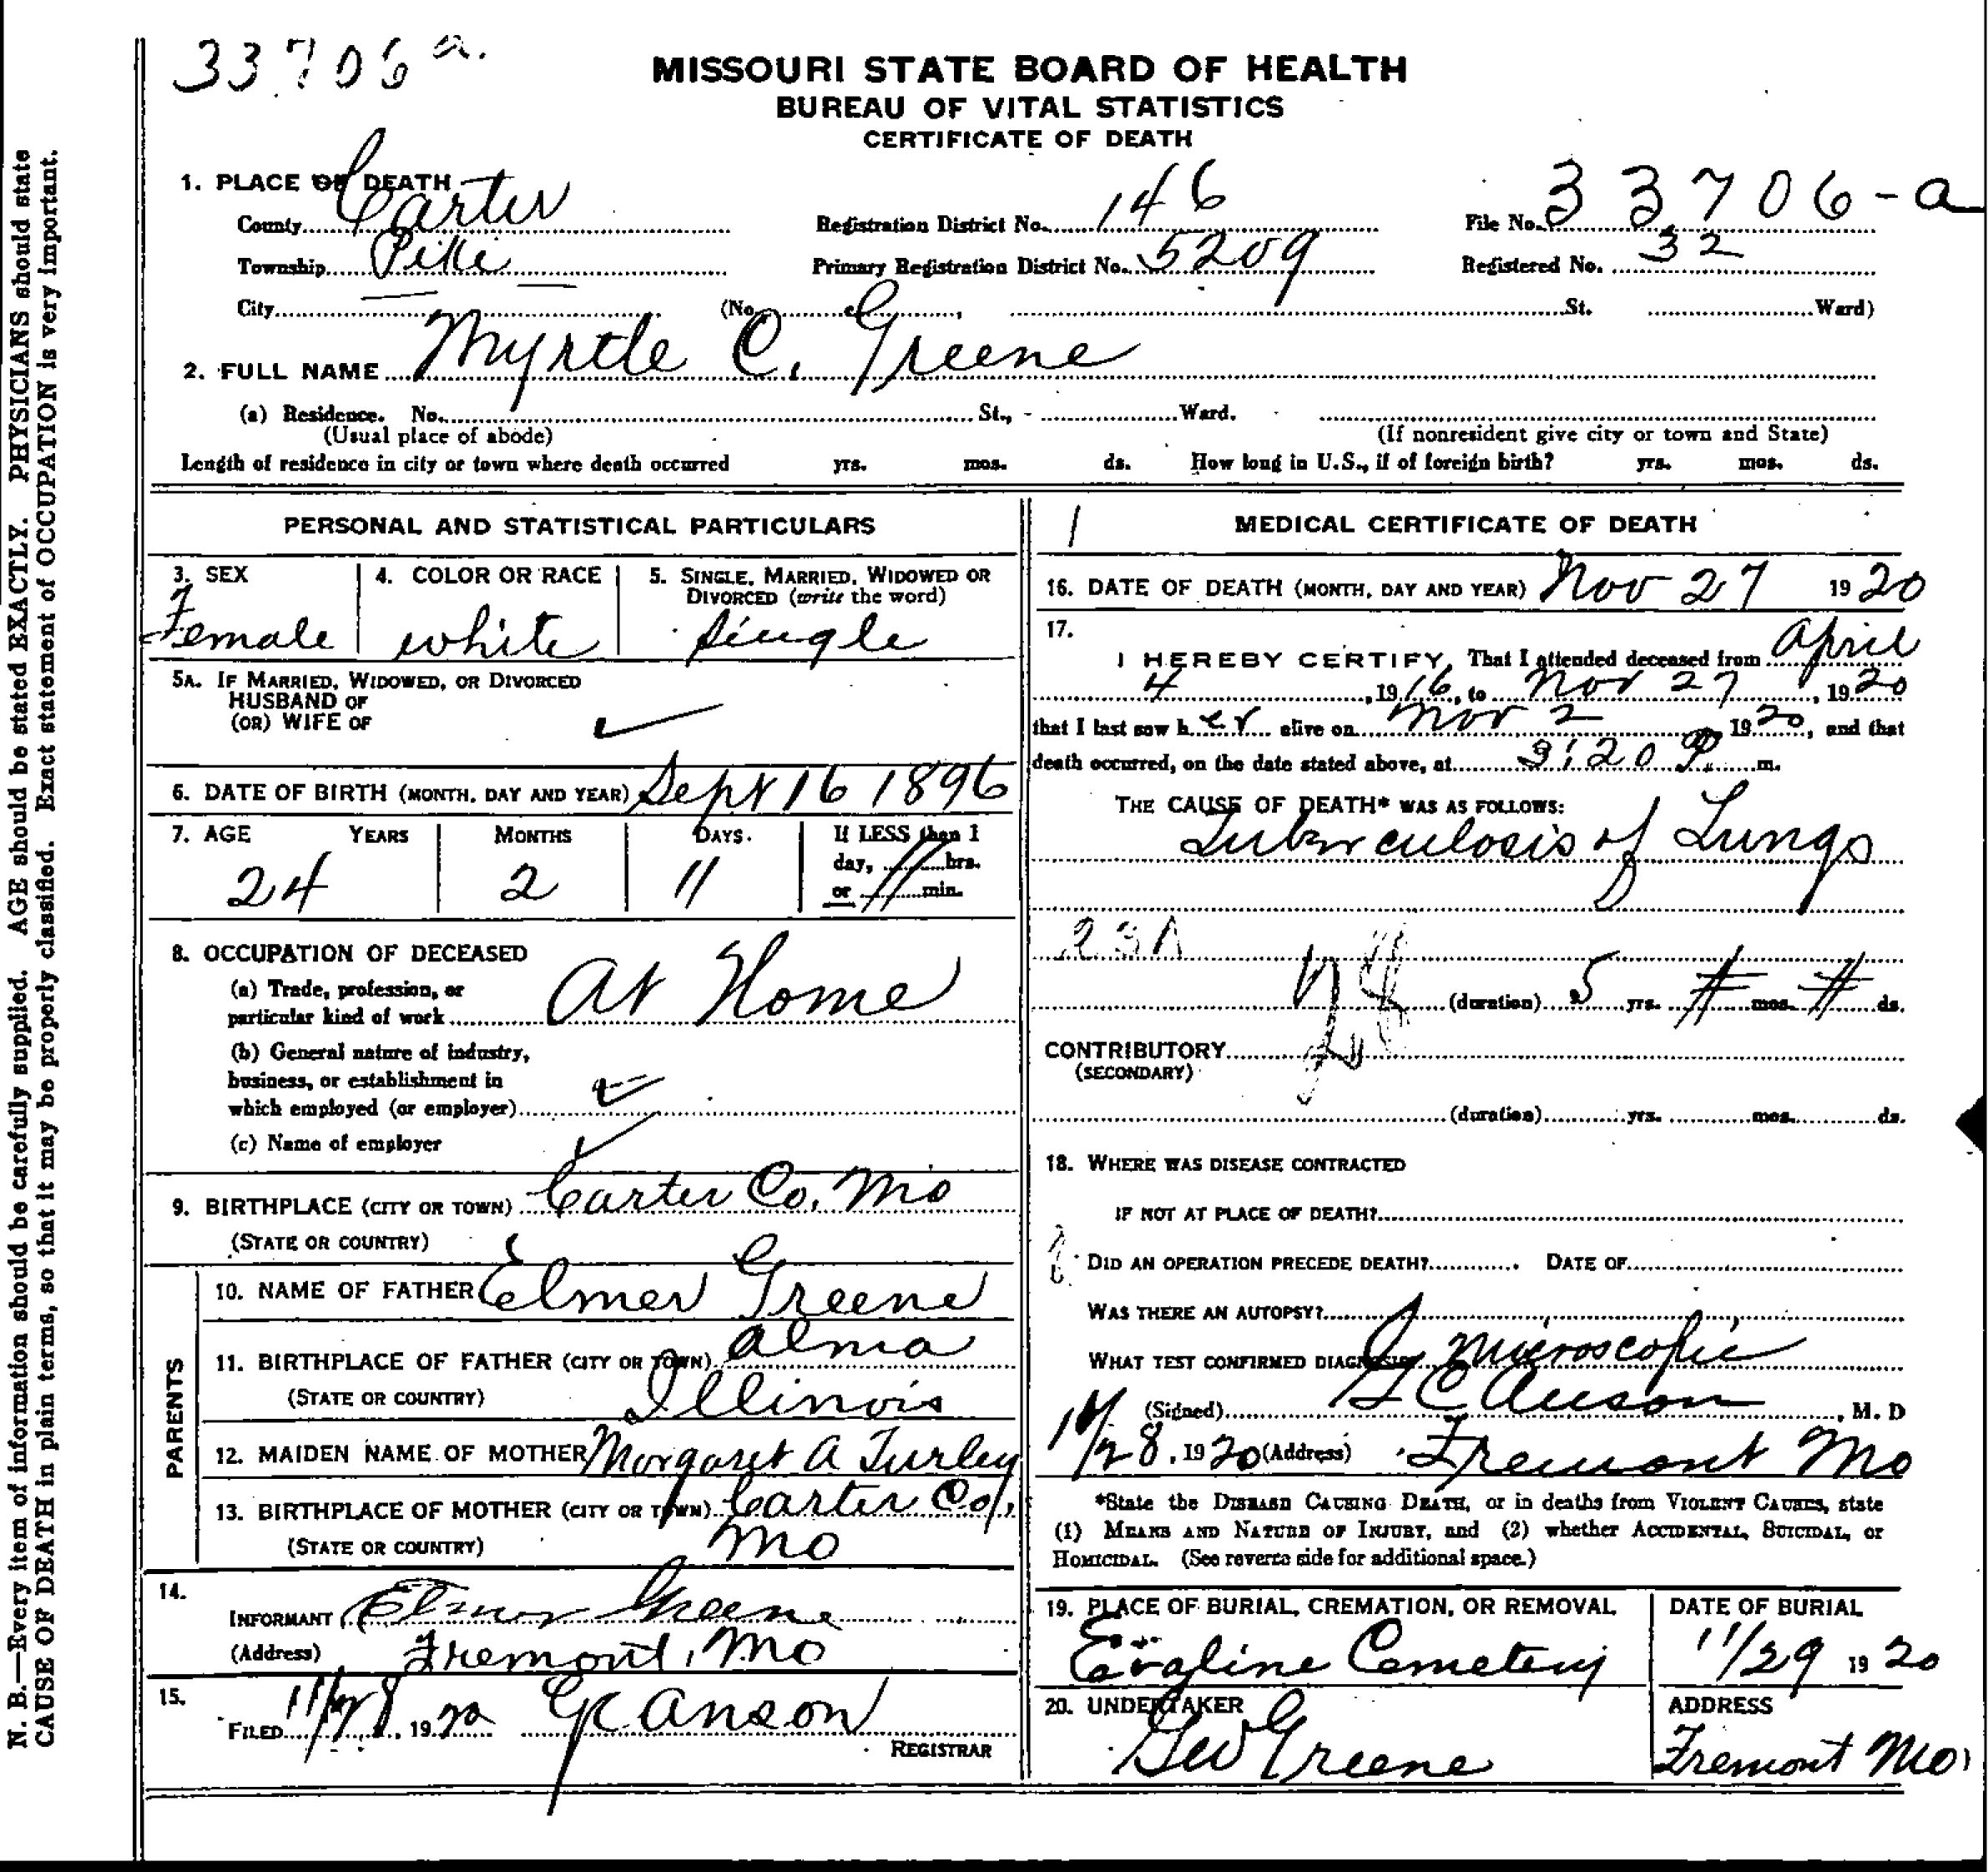 33706 a.
MISSOURI STATE BOARD OF HEALTH
BUREAU OF VITAL STATISTICS
CERTIFICATE OF DEATH
1. PLACE OF DEATH
County Carter Registration District No. 146 File No. 33706-a
Township Pike Primary Registration District No. 5209 Registered No. 32
City (No. , St. Ward)
2. FULL NAME Myrtle C. Greene
(a) Residence. No. St., Ward.
(Usual place of abode) (If nonresident give city or town and State)
Length of residence in city or town where death occurred yrs. mos. ds. How long in U.S., if of foreign birth? yrs. mos. ds.
PERSONAL AND STATISTICAL PARTICULARS
3. SEX 4. COLOR OR RACE 5. SINGLE, MARRIED, WIDOWED OR
DIVORCED (write the word)
Female white single
5A. IF MARRIED, WIDOWED, OR DIVORCED
HUSBAND OF
(OR) WIFE OF
6. DATE OF BIRTH (MONTH, DAY AND YEAR) Sept 16 1896
7. AGE YEARS MONTHS DAYS. If LESS than 1
day, hrs.
24 2 11 or min.
8. OCCUPATION OF DECEASED
(a) Trade, profession, or
particular kind of work At Home
(b) General nature of industry,
business, or establishment in
which employed (or employer)
(c) Name of employer
9. BIRTHPLACE (CITY OR TOWN) Carter Co, Mo
(STATE OR COUNTRY)
PARENTS
10. NAME OF FATHER Elmer Greene
11. BIRTHPLACE OF FATHER (CITY OR TOWN) Alma
(STATE OR COUNTRY) Illinois
12. MAIDEN NAME OF MOTHER Margaret A Turley
13. BIRTHPLACE OF MOTHER (CITY OR TOWN) Carter Co,
(STATE OR COUNTRY) Mo
14.
INFORMANT Elmer Greene
(Address) Fremont, Mo
15.
FILED 11/28, 1920 Anson
REGISTRAR
1 MEDICAL CERTIFICATE OF DEATH
16. DATE OF DEATH (MONTH, DAY AND YEAR) Nov 27 1920
17.
I HEREBY CERTIFY, That I attended deceased from April
4, 1916, to Nov 27, 1920
that I last saw her alive on Nov 2, 1920, and that
death occurred, on the date stated above, at :20 P. m.
THE CAUSE OF DEATH* WAS AS FOLLOWS:
Tuberculosis of Lungs
23A
(duration) 5 yrs. mos. ds.
CONTRIBUTORY
(SECONDARY)
(duration) yrs. mos. ds.
18. WHERE WAS DISEASE CONTRACTED
IF NOT AT PLACE OF DEATH?
DID AN OPERATION PRECEDE DEATH? DATE OF
WAS THERE AN AUTOPSY?
WHAT TEST CONFIRMED DIAGNOSIS? Microscopic
(Signed) Anson, M. D
11/28, 1920 (Address) Fremont Mo
*State the DISEASE CAUSING DEATH, or in deaths from VIOLENT CAUSES, state
(1) MEANS AND NATURE OF INJURY, and (2) whether ACCIDENTAL, SUICIDAL, or
HOMICIDAL. (See reverse side for additional space.)
19. PLACE OF BURIAL, CREMATION, OR REMOVAL DATE OF BURIAL
Evaline Cemetery 11/29 1920
20. UNDERTAKER ADDRESS
Geo Greene Fremont Mo
N. B.—Every item of information should be carefully supplied. AGE should be stated EXACTLY. PHYSICIANS should state
CAUSE OF DEATH in plain terms, so that it may be properly classified. Exact statement of OCCUPATION is very important.